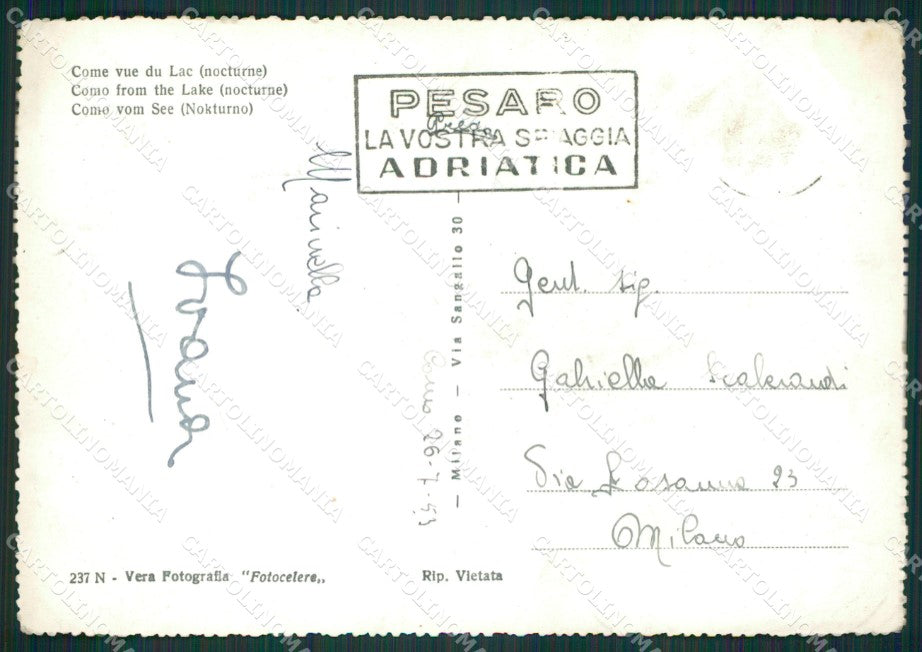 Come vue du Lac (nocturne)
Como from the Lake (nocturne)
Como vom See (Nokturno)
PESARO
LA VOSTRA SPIAGGIA
ADRIATICA
Marinella
Ivana
Como 26-7-53
— Milano — Via Sangallo 30 —
Gent. sig.
Gabriella Scalerandi
Via Losanna 23
Milano
237 N - Vera Fotografia "Fotocelere„
Rip. Vietata
CARTOLINOMANIA